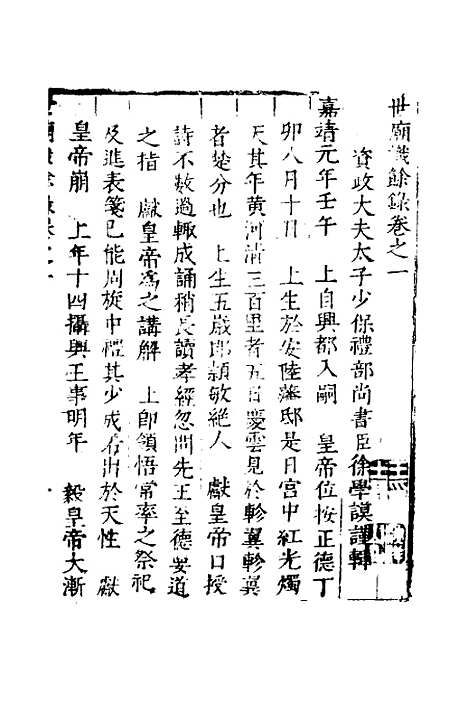 世廟識餘錄卷之一
資政大夫太子少保禮部尚書臣徐學謨謹輯
嘉靖元年壬午 上自興都入嗣 皇帝位按正德丁
卯八月十日 上生於安陸藩邸是日宮中紅光燭
天其年黃河清三百里者五日慶雲見於軫翼軫翼
者楚分也 上生五歲即穎敏絕人 獻皇帝口授
詩不數過輒成誦稍長讀孝經忽問先王至德要道
之指 獻皇帝為之講解 上即領悟常率之祭祀
及進表箋已能周旋中禮其少成若出於天性 獻
皇帝崩 上年十四攝興王事明年 毅皇帝大漸